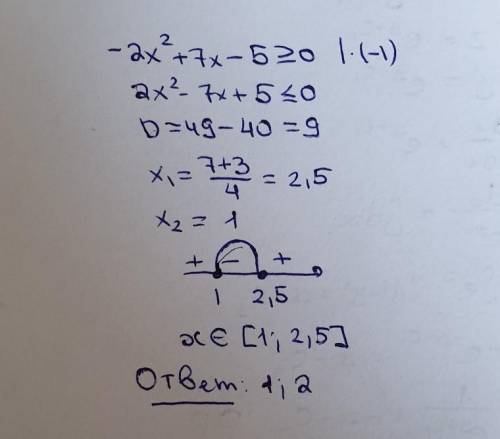 -2x²+7x-5≥0 |·(-1)
2x²-7x+5≤0
D=49-40=9
x₁=(7+3)/4=2,5
x₂=1
+ - +
1 2,5
x∈[1; 2,5]
Ответ: 1; 2